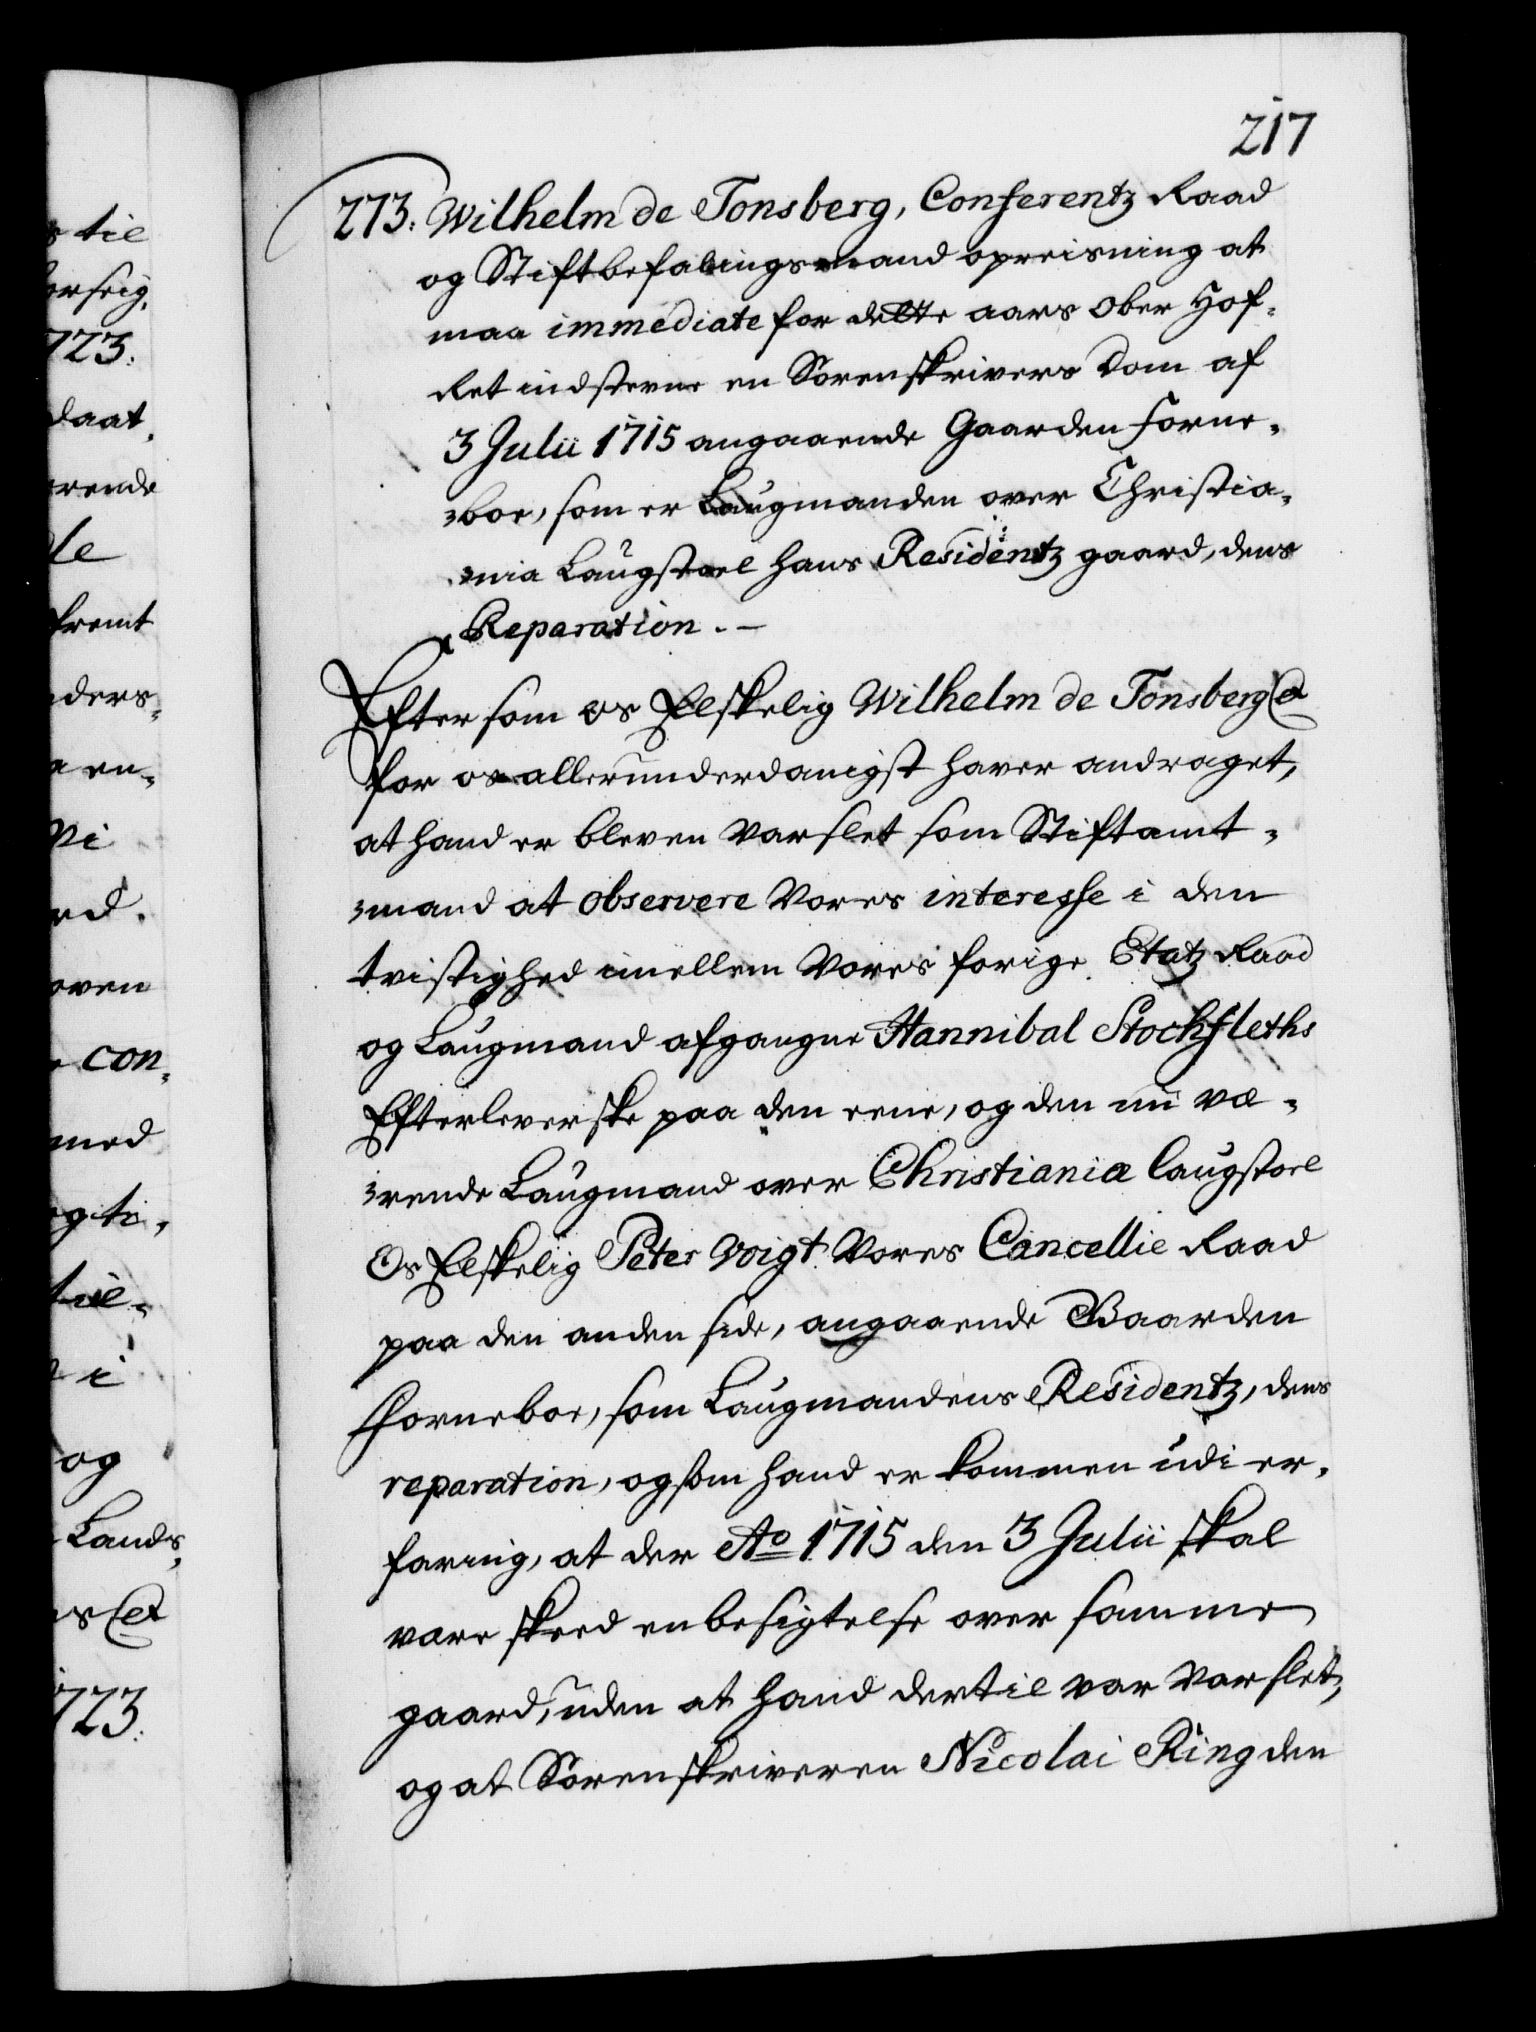 217
273. Wilhelm de Tonsberg, Conferentz Raad
og Stiftbefalingsmand opreisning at
maa immediate for dette aars Ober Hof-
Ret indstevne en Sorenskrivers Dom af
3 Julii 1715 angaaende Gaarden Forne-
=boe, som er Laugmanden over Christia-
=nia Laugstoel hans Residentz gaard, dens
Reparation. -
Eftersom os Elskelig Wilhelm de Tonsberg etc
for os allerunderdanigst haver andraget,
at hand er bleven varslet som Stiftamt-
=mand at observere Vores interesse i den
tvistighed imellem Vores forige Etatz Raad
og Laugmand afgangne Hannibal Stochfleths
Efterleverske paa den eene, og den nu væ-
=rende Laugmand over Christiania laugstoel
Os Elskelig Peter Voigt Vores Cancellie Raad
paa den anden side, angaaende Gaarden
Forneboe, som Laugmandens Residentz, dens
reparation, og som hand er kommen udi er-
faring, at der Ao 1715 den 3 Julii skal
være skeed en besigtelse over samme
gaard, uden at hand dertil var varslet,
og at Sorenskriveren Nicolai Ring den
s til
forseig,
1723.
daat,
erende
le
fremt
nders-
a en-
Vi
ed.
oven
con-
med
og ti-
til-
i
og
Lands
s etc
1723.